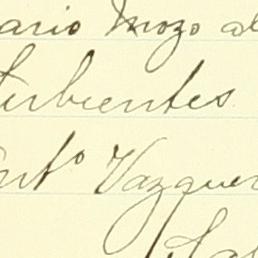 ario Mozo al
turbientes
nto Vazquez